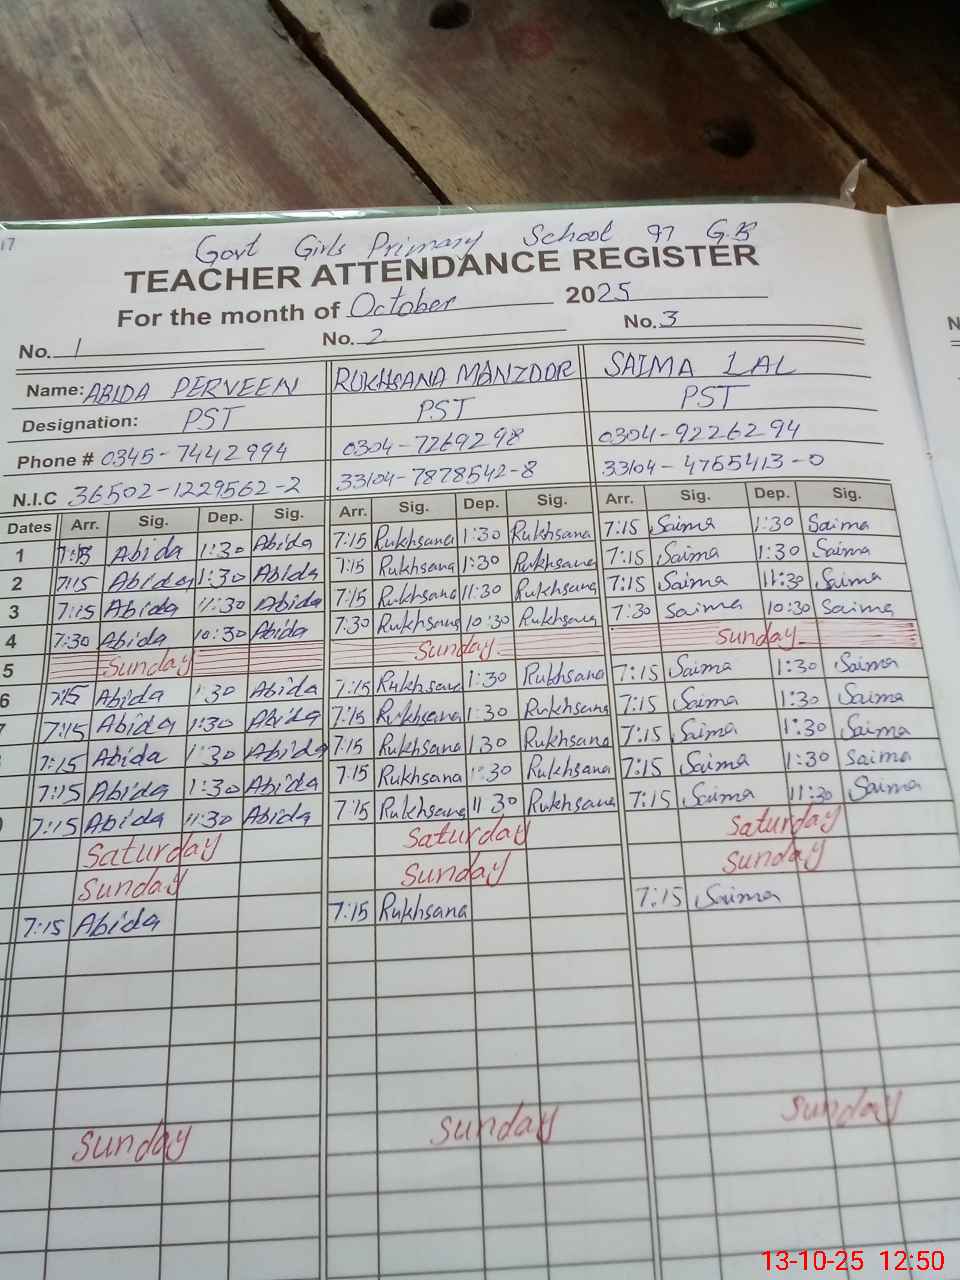 17
Govt Girls Primary School 97 G.B
TEACHER ATTENDANCE REGISTER
For the month of October 2025
No. 1 No. 2 No. 3
Name: ABIDA PERVEEN RUKHSANA MANZOOR SAIMA LAL
Designation: PST PST PST
Phone # 0345-7442994 0304-7269298 0304-9226294
N.I.C 36502-1229562-2 33104-7878542-8 33104-4765413-0
Dates Arr. Sig. Dep. Sig. Arr. Sig. Dep. Sig. Arr. Sig. Dep. Sig.
1 7:15 Abida 1:30 Abida 7:15 Rukhsana 1:30 Rukhsana 7:15 Saima 1:30 Saima
2 7:15 Abida 1:30 Abida 7:15 Rukhsana 1:30 Rukhsana 7:15 Saima 1:30 Saima
3 7:15 Abida 11:30 Abida 7:15 Rukhsana 11:30 Rukhsana 7:15 Saima 11:30 Saima
4 7:30 Abida 10:30 Abida 7:30 Rukhsana 10:30 Rukhsana 7:30 Saima 10:30 Saima
5 Sunday Sunday Sunday
6 7:15 Abida 1:30 Abida 7:15 Rukhsana 1:30 Rukhsana 7:15 Saima 1:30 Saima
7 7:15 Abida 1:30 Abida 7:15 Rukhsana 1:30 Rukhsana 7:15 Saima 1:30 Saima
7:15 Abida 1:30 Abida 7:15 Rukhsana 1:30 Rukhsana 7:15 Saima 1:30 Saima
7:15 Abida 1:30 Abida 7:15 Rukhsana 1:30 Rukhsana 7:15 Saima 1:30 Saima
7:15 Abida 11:30 Abida 7:15 Rukhsana 11:30 Rukhsana 7:15 Saima 11:30 Saima
Saturday Saturday Saturday
Sunday Sunday Sunday
7:15 Abida 7:15 Rukhsana 7:15 Saima
Sunday Sunday Sunday
13-10-25 12:50